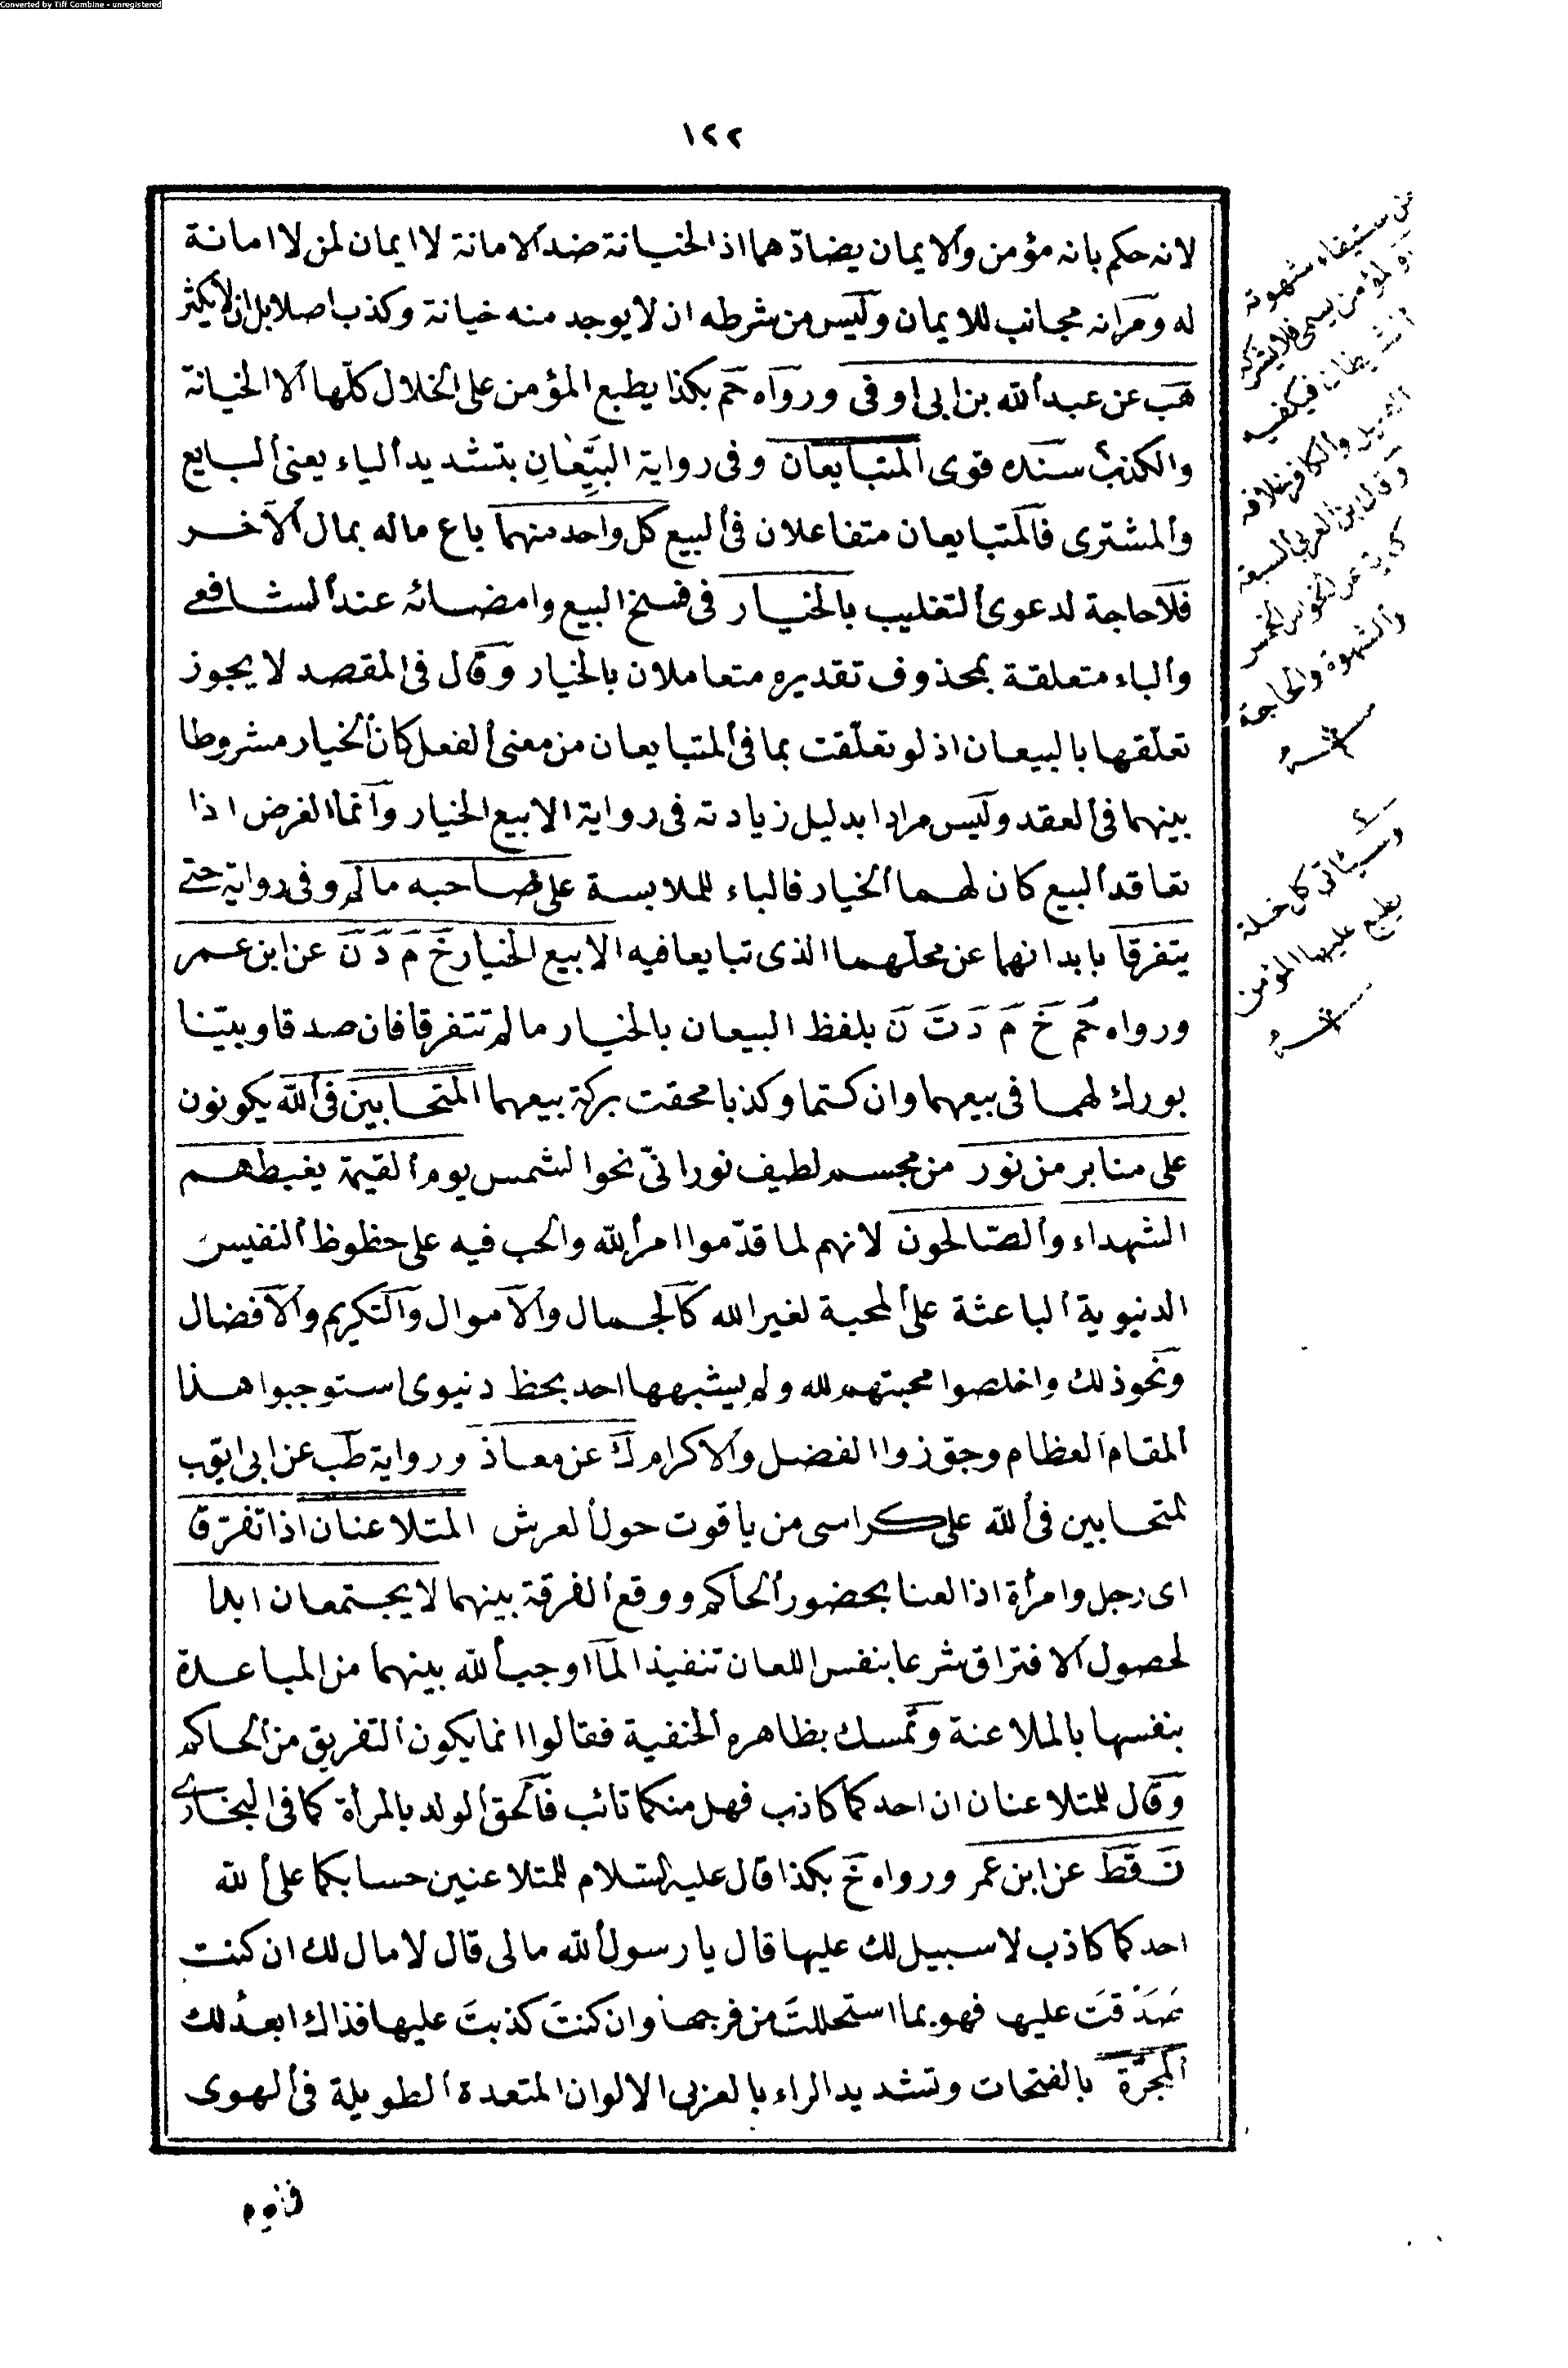 Converted by Tiff Combine - unregistered
١٢٢
لانه حكم بانه مؤمن والايمان يضادّهما اذ الخيانة ضد الامانة لا ايمان لمن لا امانة
له ومرانه مجانب للايمان وليس من شرطه ان لا يوجد منه خيانة وكذب اصلا بل ان لا يكثر
هب عن عبد الله بن ابى اوفى ورواه حم بكذا يطبع المؤمن على الخلال كلّها الا الخيانة
والكذب سنده قوى المتبايعان وفى رواية البيِّعان بتشديد الياء يعنى البايع
والمشترى فالمتبايعان متفاعلان فى البيع كل واحد منهما باع ماله بمال الآخر
فلا حاجة لدعوى التغليب بالخيار فى فسخ البيع وامضائه عند الشافعى
والباء متعلقة بمحذوف تقديره متعاملان بالخيار وقال فى المقصد لا يجوز
تعلّقها بالبيعان اذ لو تعلّقت بما فى المتبايعان من معنى الفعل كان الخيار مشروطا
بينهما فى العقد وليس مرادا بدليل زيادته فى رواية الا بيع الخيار وانما الغرض اذا
تعاقد البيع كان لهما الخيار فالباء للملابسة على صاحبه ما لم وفى رواية حتى
يتفرقا بابدانهما عن محلّهما الذى تبايعا فيه الا بيع الخيار خ م د ن عن ابن عمر
ورواه حم خ م د ت ن بلفظ البيعان بالخيار ما لم تتفرقا فان صدقا وبيّنا
بورك لهما فى بيعهما وان كتما وكذبا محقت بركة بيعهما المتحابين فى الله يكونون
على منابر من نور من مجسم لطيف نورانىّ نحو الشمس يوم القيمة يغبطهم
الشهداء والصّالحون لانهم لما قدّموا امر الله والحب فيه على حظوظ النفيس
الدنيوية الباعثة على المحبة لغير الله كالجمال والاموال والتكريم والافضال
ونحو ذلك واخلصوا محبتهم لله ولم يشبهها احد بحظ دنيوى استوجبوا هذا
المقام العظام وجوّزوا الفضل والاكرام ك عن معاذ ورواية طب عن ابى ايّوب
لمتحابين فى الله على كراسى من ياقوت حول العرش المتلاعنان اذا تفرّقا
اى رجل وامرأة اذا لعنا بحضور الحاكم ووقع الفرقة بينهما لا يجتمعان ابدا
لحصول الافتراق شرعا بنفس اللعان تنفيذا لما اوجب الله بينهما من المباعدة
بنفسها بالملاعنة وتمسك بظاهره الحنفية فقالوا انما يكون التفريق من الحاكم
وقال للمتلاعنان ان احدكما كاذب فهل منكما تائب فالحق الولد بالمرأة كما فى البخارى
ق قط عن ابن عمر ورواه خ بكذا قال عليه السلام للمتلاعنين حسابكما على الله
احدكما كاذب لا سبيل لك عليها قال يا رسول الله مالى قال لا مال لك ان كنت
صَدَقتَ عليها فهو بما استحللتَ من فرجها وان كنتَ كذبتَ عليها فذاك ابعدُ لك
المجرّة بالفتحات وتشديد الراء بالعزبى الالوان المتعدة الطويلة فى الهوى
من ستيفاء شهوته
والمؤمن يسمى فلا يشرك
الشيطان فيكفيه
القليل والكافر بخلافه
وقال ابن العربى السبعة
كناية عن الحواس الخمس
والشهوة والحاجة
وسيأتى كل خلة
يطبع عليها المؤمن